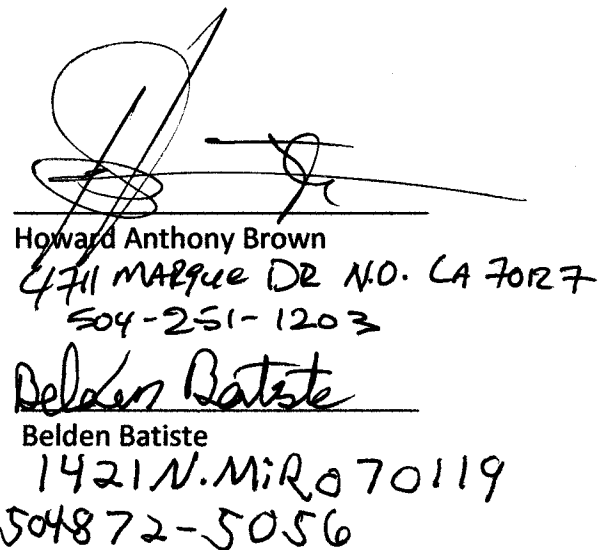 Howard Anthony Brown
4711 MARQUE DR N.O. LA 70127
504-251-1203
Belden Batiste
Belden Batiste
1421 N. MiRO 70119
504872-5056